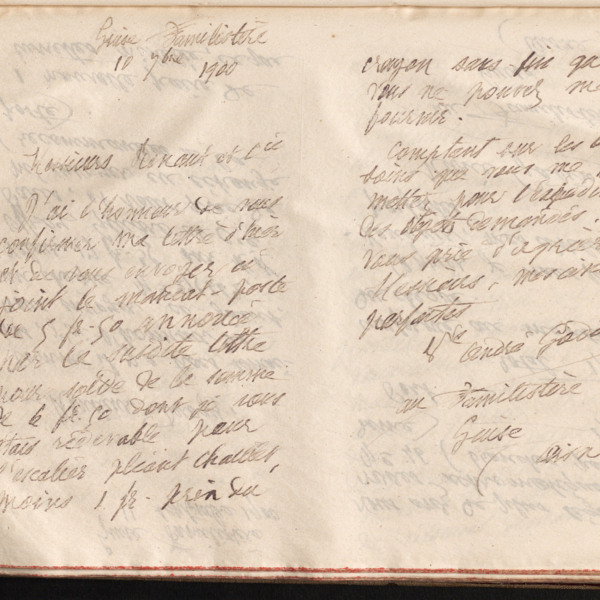 Guise Familistère
10 9bre 1900
Messieurs Renaut et Cie
J'ai l'honneur de vous
confirmer ma lettre d'hier
et de vous envoyer ci
joint le mandat-poste
de 5 fr. 50 annoncé
par la susdite lettre
pour solde de la somme
de 6 fr. 50 dont je vous
étais redevable pour
l'escalier pliant Challes,
moins 1 fr. prix du
crayon sans fin qu
vous ne pouvez me
fournir.
Comptant sur les
soins que vous me
mettre pour l'
des objets demandés.
vous prie d'agréer
Messieurs, mes
parfaites
Vve André God
au Familistère
Guise
Aisn